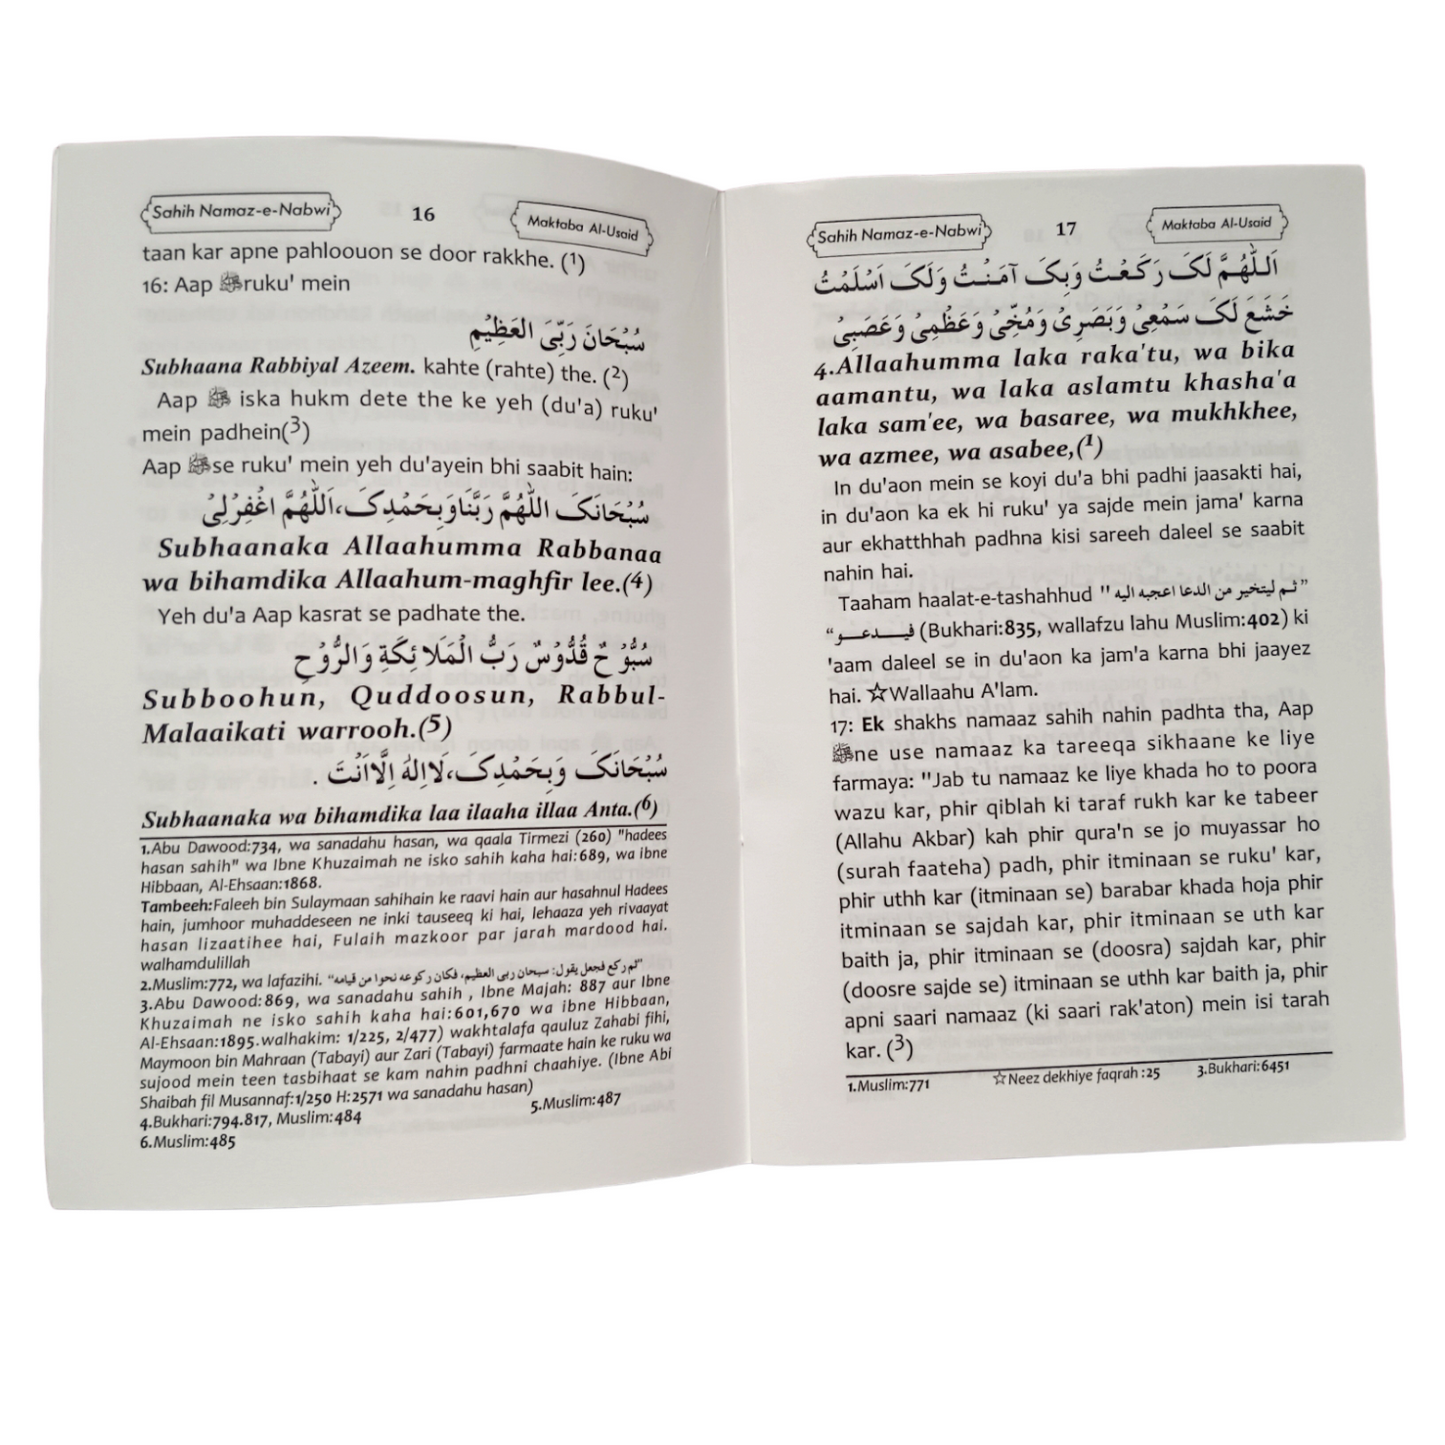 Sahih Namaz-e-Nabwi 16 Maktaba Al-Usaid
taan kar apne pahloouon se door rakkhe. (1)
16: Aap ﷺ ruku' mein
سُبْحَانَ رَبِّیَ العَظِیْمِ
Subhaana Rabbiyal Azeem. kahte (rahte) the. (2)
Aap ﷺ iska hukm dete the ke yeh (du'a) ruku'
mein padhein(3)
Aap ﷺ se ruku' mein yeh du'ayein bhi saabit hain:
سُبْحَانَکَ اللّٰهُمَّ رَبَّنَاوَبِحَمْدِکَ،اَللّٰهُمَّ اغْفِرْلِیْ
Subhaanaka Allaahumma Rabbanaa
wa bihamdika Allaahum-maghfir lee.(4)
Yeh du'a Aap kasrat se padhate the.
سُبُّوْ حٌ قُدُّوْسٌ رَبُّ الْمَلَا ئِكَةِ وَالرُّوْحِ
Subboohun, Quddoosun, Rabbul-
Malaaikati warrooh.(5)
سُبْحَانَکَ وَبِحَمْدِکَ،لَااِلٰهَ اِلَّااَنْتَ .
Subhaanaka wa bihamdika laa ilaaha illaa Anta.(6)
1.Abu Dawood:734, wa sanadahu hasan, wa qaala Tirmezi (260) "hadees
hasan sahih" wa Ibne Khuzaimah ne isko sahih kaha hai:689, wa ibne
Hibbaan, Al-Ehsaan:1868.
Tambeeh:Faleeh bin Sulaymaan sahihain ke raavi hain aur hasahnul Hadees
hain, jumhoor muhaddeseen ne inki tauseeq ki hai, lehaaza yeh rivaayat
hasan lizaatihee hai, Fulaih mazkoor par jarah mardood hai.
walhamdulillah
2.Muslim:772, wa lafazihi. "ثم ركع فجعل يقول: سبحان ربى العظيم، فكان ركوعه نحوا من قيامه"
3.Abu Dawood:869, wa sanadahu sahih , Ibne Majah: 887 aur Ibne
Khuzaimah ne isko sahih kaha hai:601,670 wa ibne Hibbaan,
Al-Ehsaan:1895.walhakim: 1/225, 2/477) wakhtalafa qauluz Zahabi fihi,
Maymoon bin Mahraan (Tabayi) aur Zari (Tabayi) farmaate hain ke ruku wa
sujood mein teen tasbihaat se kam nahin padhni chaahiye. (Ibne Abi
Shaibah fil Musannaf:1/250 H:2571 wa sanadahu hasan)
4.Bukhari:794.817, Muslim:484 5.Muslim:487
6.Muslim:485
Sahih Namaz-e-Nabwi 17 Maktaba Al-Usaid
اَللّٰهُمَّ لَکَ رَکَعْتُ وَبِکَ آمَنْتُ وَلَکَ اَسْلَمْتُ
خَشَعَ لَکَ سَمْعِیْ وَبَصَرِیْ وَمُخِّیْ وَعَظْمِیْ وَعَصَبِیْ
4.Allaahumma laka raka'tu, wa bika
aamantu, wa laka aslamtu khasha'a
laka sam'ee, wa basaree, wa mukhkhee,
wa azmee, wa asabee,(1)
In du'aon mein se koyi du'a bhi padhi jaasakti hai,
in du'aon ka ek hi ruku' ya sajde mein jama' karna
aur ekhatthhah padhna kisi sareeh daleel se saabit
nahin hai.
Taaham haalat-e-tashahhud "ثم ليتخير من الدعا اعجبه اليه"
"فيدعو" (Bukhari:835, wallafzu lahu Muslim:402) ki
'aam daleel se in du'aon ka jam'a karna bhi jaayez
hai. ☆Wallaahu A'lam.
17: Ek shakhs namaaz sahih nahin padhta tha, Aap
ﷺ ne use namaaz ka tareeqa sikhaane ke liye
farmaya: "Jab tu namaaz ke liye khada ho to poora
wazu kar, phir qiblah ki taraf rukh kar ke tabeer
(Allahu Akbar) kah phir qura'n se jo muyassar ho
(surah faateha) padh, phir itminaan se ruku' kar,
phir uthh kar (itminaan se) barabar khada hoja phir
itminaan se sajdah kar, phir itminaan se uth kar
baith ja, phir itminaan se (doosra) sajdah kar, phir
(doosre sajde se) itminaan se uthh kar baith ja, phir
apni saari namaaz (ki saari rak'aton) mein isi tarah
kar. (3)
1.Muslim:771 ☆Neez dekhiye faqrah :25 3.Bukhari:6451